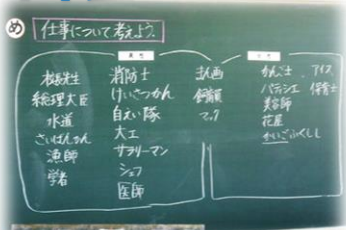 め
仕事について考えよう。
男性
校長先生
総理大臣
水道
さいばんかん
漁師
学者
消防士
けいさつかん
自えい隊
大工
サラリーマン
シェフ
医師
まん画
マック
女性
かんご士
パティシエ
美容師
花屋
かいごふくしし
アイス
保育士